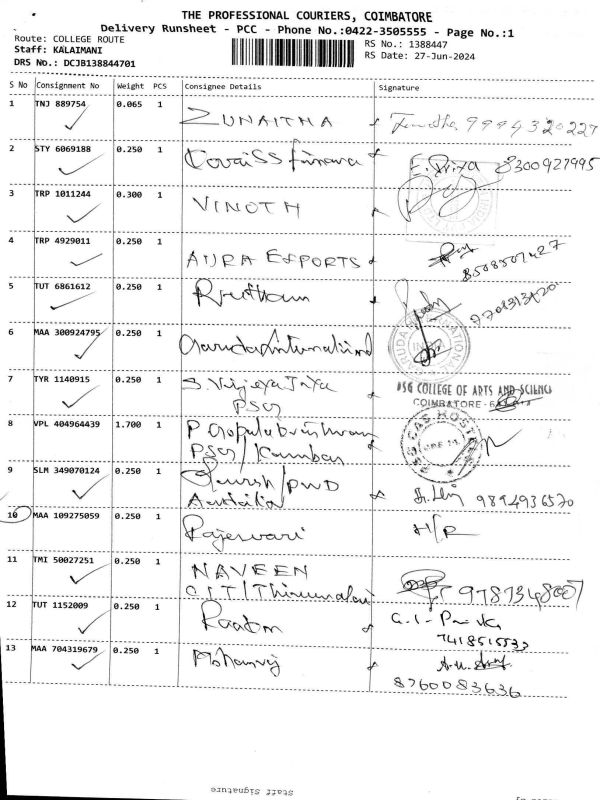 THE PROFESSIONAL COURIERS, COIMBATORE
Delivery Runsheet - PCC - Phone No.:0422-3505555 - Page No.:1
Route: COLLEGE ROUTE
RS No.: 1388447
Staff: KALAIMANI
RS Date: 27-Jun-2024
DRS No.: DCJB138844701
S No Consignment No Weight PCS Consignee Details Signature
1 TNJ 889754 0.065 1 ZUNAITHA 9994320227
2 STY 6069188 0.250 1 Covai SS finance E. Priya 8300927995
3 TRP 1011244 0.300 1 VINOTH
4 TRP 4929011 0.250 1 AURA EXPORTS 8508507427
5 TUT 6861612 0.250 1
6 MAA 300924795 0.250 1 Garuda International
7 TYR 1140915 0.250 1 S. Vijeya
PSG
PSG COLLEGE OF ARTS AND SCIENCE
COIMBATORE -
8 VPL 404964439 1.700 1 P Gopalakrishnan
PSG/Kamban
PSG CAS HOSTEL
9 SLM 349070124 0.250 1 /PWD
9894936570
10 MAA 109275059 0.250 1 Rajeswari H/R
11 TMI 50027251 0.250 1 NAVEEN
CIT/Thirumalai
12 TUT 1152009 0.250 1
7418515533
13 MAA 704319679 0.250 1 Mohanraj
8760083636
Staff Signature